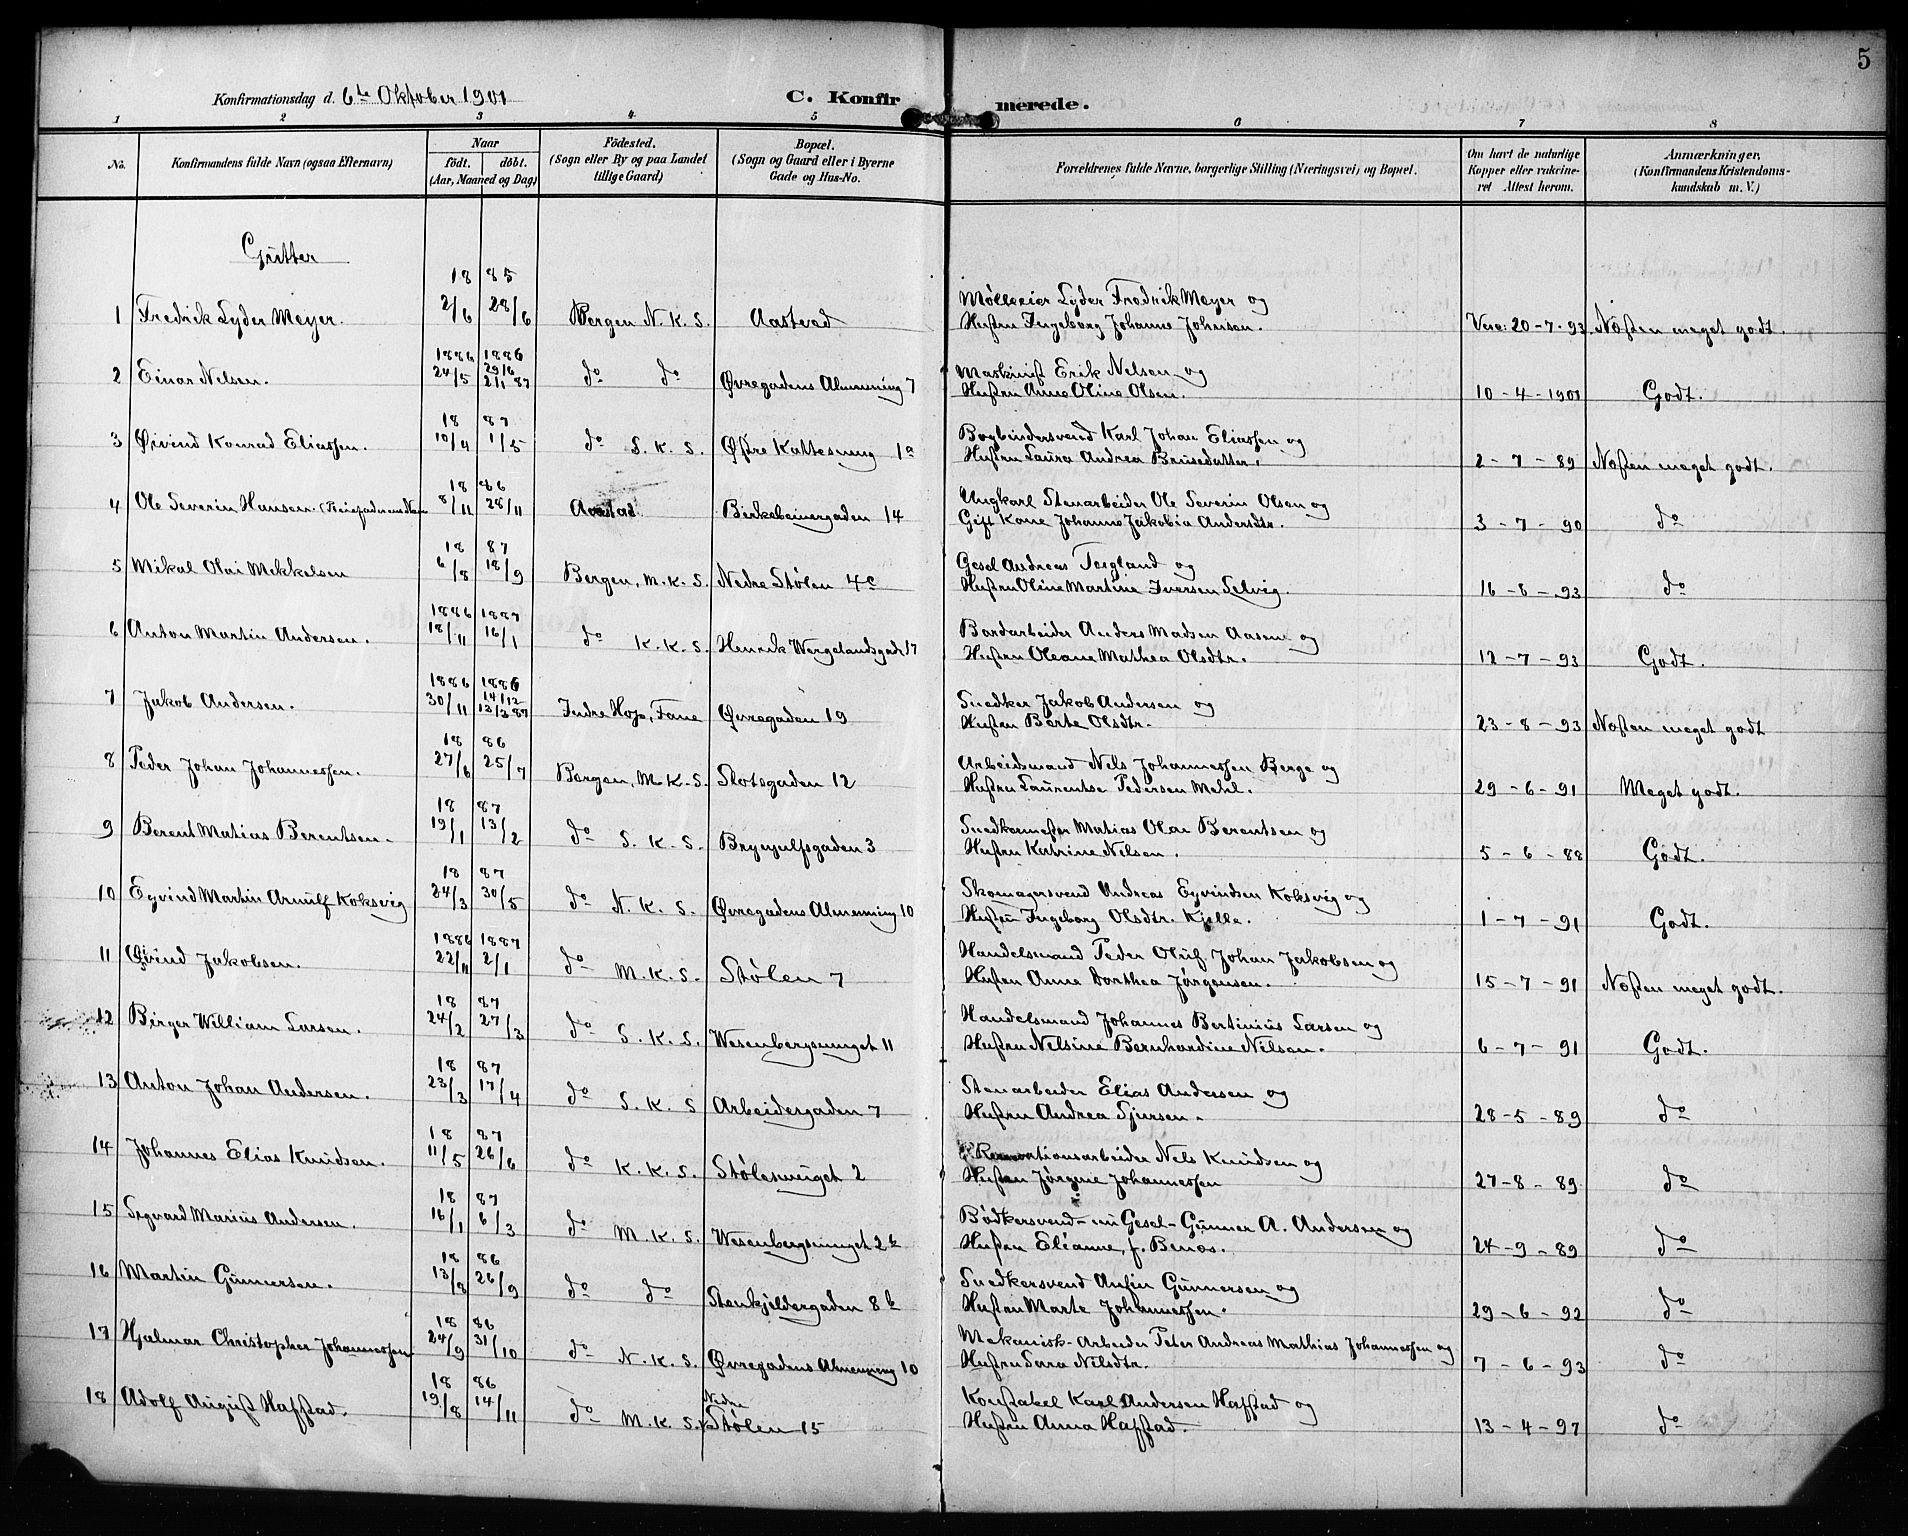 5
Konfirmationsdag d. 6te Oktober 1901 C. Konfirmerede.
1 2 3 4 5 6 7 8
No. Konfirmandens fulde Navn (ogsaa Efternavn) Naar født. døbt. (Aar, Maaned og Dag) Födested. (Sogn eller By og paa Landet tillige Gaard) Bopæl. (Sogn og Gaard eller i Byerne Gade og Hus-No. Forældrenes fulde Navne, borgerlige Stilling (Næringsvei) og Bopæl. Om havt de naturlige Kopper eller vakcineret Attest herom. Anmærkninger. (Konfirmandens Kristendomskundskab m. V.)
Gutter
18 85
Mølleeier Lyder Fredrik Meyer og
1 Fredrik Lyder Meyer. 2/6 28/6 Bergen N. K. S. Aastved Hustru Ingeborg Johanne Johnsen. Vacc: 20-7-93. Næsten meget godt.
1886 1886
29/6
Maskinist Erik Nelsen og
2 Einar Nelsen. 24/5 2/1 87 do do Øvregadens Almenning 7 Hustru Anne Oline Olsen. 10-4-1901 Godt.
18 87
Bogbindersvend Karl Johan Eliassen og
3 Øivind Konrad Eliassen. 10/4 1/5 do S. K. S. Østre Kattesmug 1a Hustru Laura Andrea Brusedatter. 2-7-89 Næsten meget godt.
18 86
Ungkarl Stenarbeider Ole Severin Olsen og
4 Ole Severin Hansen 8/11 28/11 Aastad Birkebeinergaden 14 Gift Kone Johanne Jakobia Andersdtr. 3-7-90 do
18 87
Gesel Andreas Teigland og
5 Mikal Olai Mikkelsen 6/8 18/9 Bergen, M. K. S. Nedre Stølen 4c Hustru Oline Martine Iversen Selvig. 16-8-93 do
1886 1887
Bordarbeider Anders Madsen Aasen og
6 Anton Martin Andersen. 18/11 16/1 do K. K. S. Henrik Wergelandsgade 17 Hustru Oleane Mathea Olsdtr. 12-7-93 Godt.
1886 1886
14/12
Snedker Jakob Andersen og
7 Jakob Andersen. 30/11 13/3 87 Indre Hop, Fane Øvregaden 19 Hustru Berte Olsdtr. 23-8-93 Næsten meget godt
18 86
Arbeidsmand Nels Johannessen Berge og
8 Peder Johan Johannessen. 27/6 25/7 Bergen, M. K. S. Slotsgaden 12 Hustru Laurentse Pedersen Mehl. 29-6-91 Meget godt.
18 87
Snedkermester Matias Olai Berentsen og
9 Berent Matias Berentsen. 19/1 13/2 do S. K. S. Brynjulfsgaden 3 Hustru Katrine Nilsen. 5-6-88 Godt.
18 87
Skomagersvend Andreas Eyvindsen Koksvig og
10 Eyvind Martin Arnulf Koksvig 24/3 30/5 do N. K. S. Øvregadens Almenning 10 Hustru Ingeborg Olsdtr. Kjelle. 1-7-91 Godt.
1886 1887
Handelsmand Peder Oluf Johan Jakobsen og
11 Øivind Jakobsen. 22/11 2/1 do M. K. S. Stølen 7 Hustru Anna Dorthea Jørgensen. 15-7-91 Næsten meget godt.
18 87
Handelsmand Johannes Bertinius Larsen og
12 Birger William Larsen. 24/2 27/3 do S. K. S. Wesenbergsmuget 11 Hustru Nelsine Bernhardine Nilsen. 6-7-91 Godt.
18 87
Stenarbeider Elias Andersen og
13 Anton Johan Andersen. 23/3 17/4 do S. K. S Arbeidergaden 7 Hustru Andrea Sjursen. 28-5-89 do
18 87
Renovationsarbeider Nels Knudsen og
14 Johannes Elias Knudsen. 11/5 26/6 do K. K. S. Stølesmuget 2 Hustru Jørgine Johannessen 27-8-89 do
18 87
Bødkersvend-nu Gesel-Gunner A. Andersen og
15 Sigvard Marius Andersen. 16/1 6/3 do M. K. S. Wesenbergsmuget 2b Hustru Elianne, f. Benos. 24-9-89 do
18 86
Snedkersvend Anfin Gunnersen og
16 Martin Gunnersen. 13/8 26/9 do do Stenkjeldergaden 8b Hustru Marte Johannessen. 29-6-92 do
18 86
Mekanisk-Arbeider Peter Andreas Mathias Johannessen og
17 Hjalmar Christopher Johannessen 24/9 31/10 do N. K. S. Øvregadens Almenning 10 Hustru Sara Nilsdtr. 7-6-93 do
18 86
Nedre
Konstabel Karl Andersen Hafstad og
18 Adolf August Hafstad. 19/8 14/11 do M. K. S. Stølen 15 Hustru Anna Hafstad. 13-4-97 do